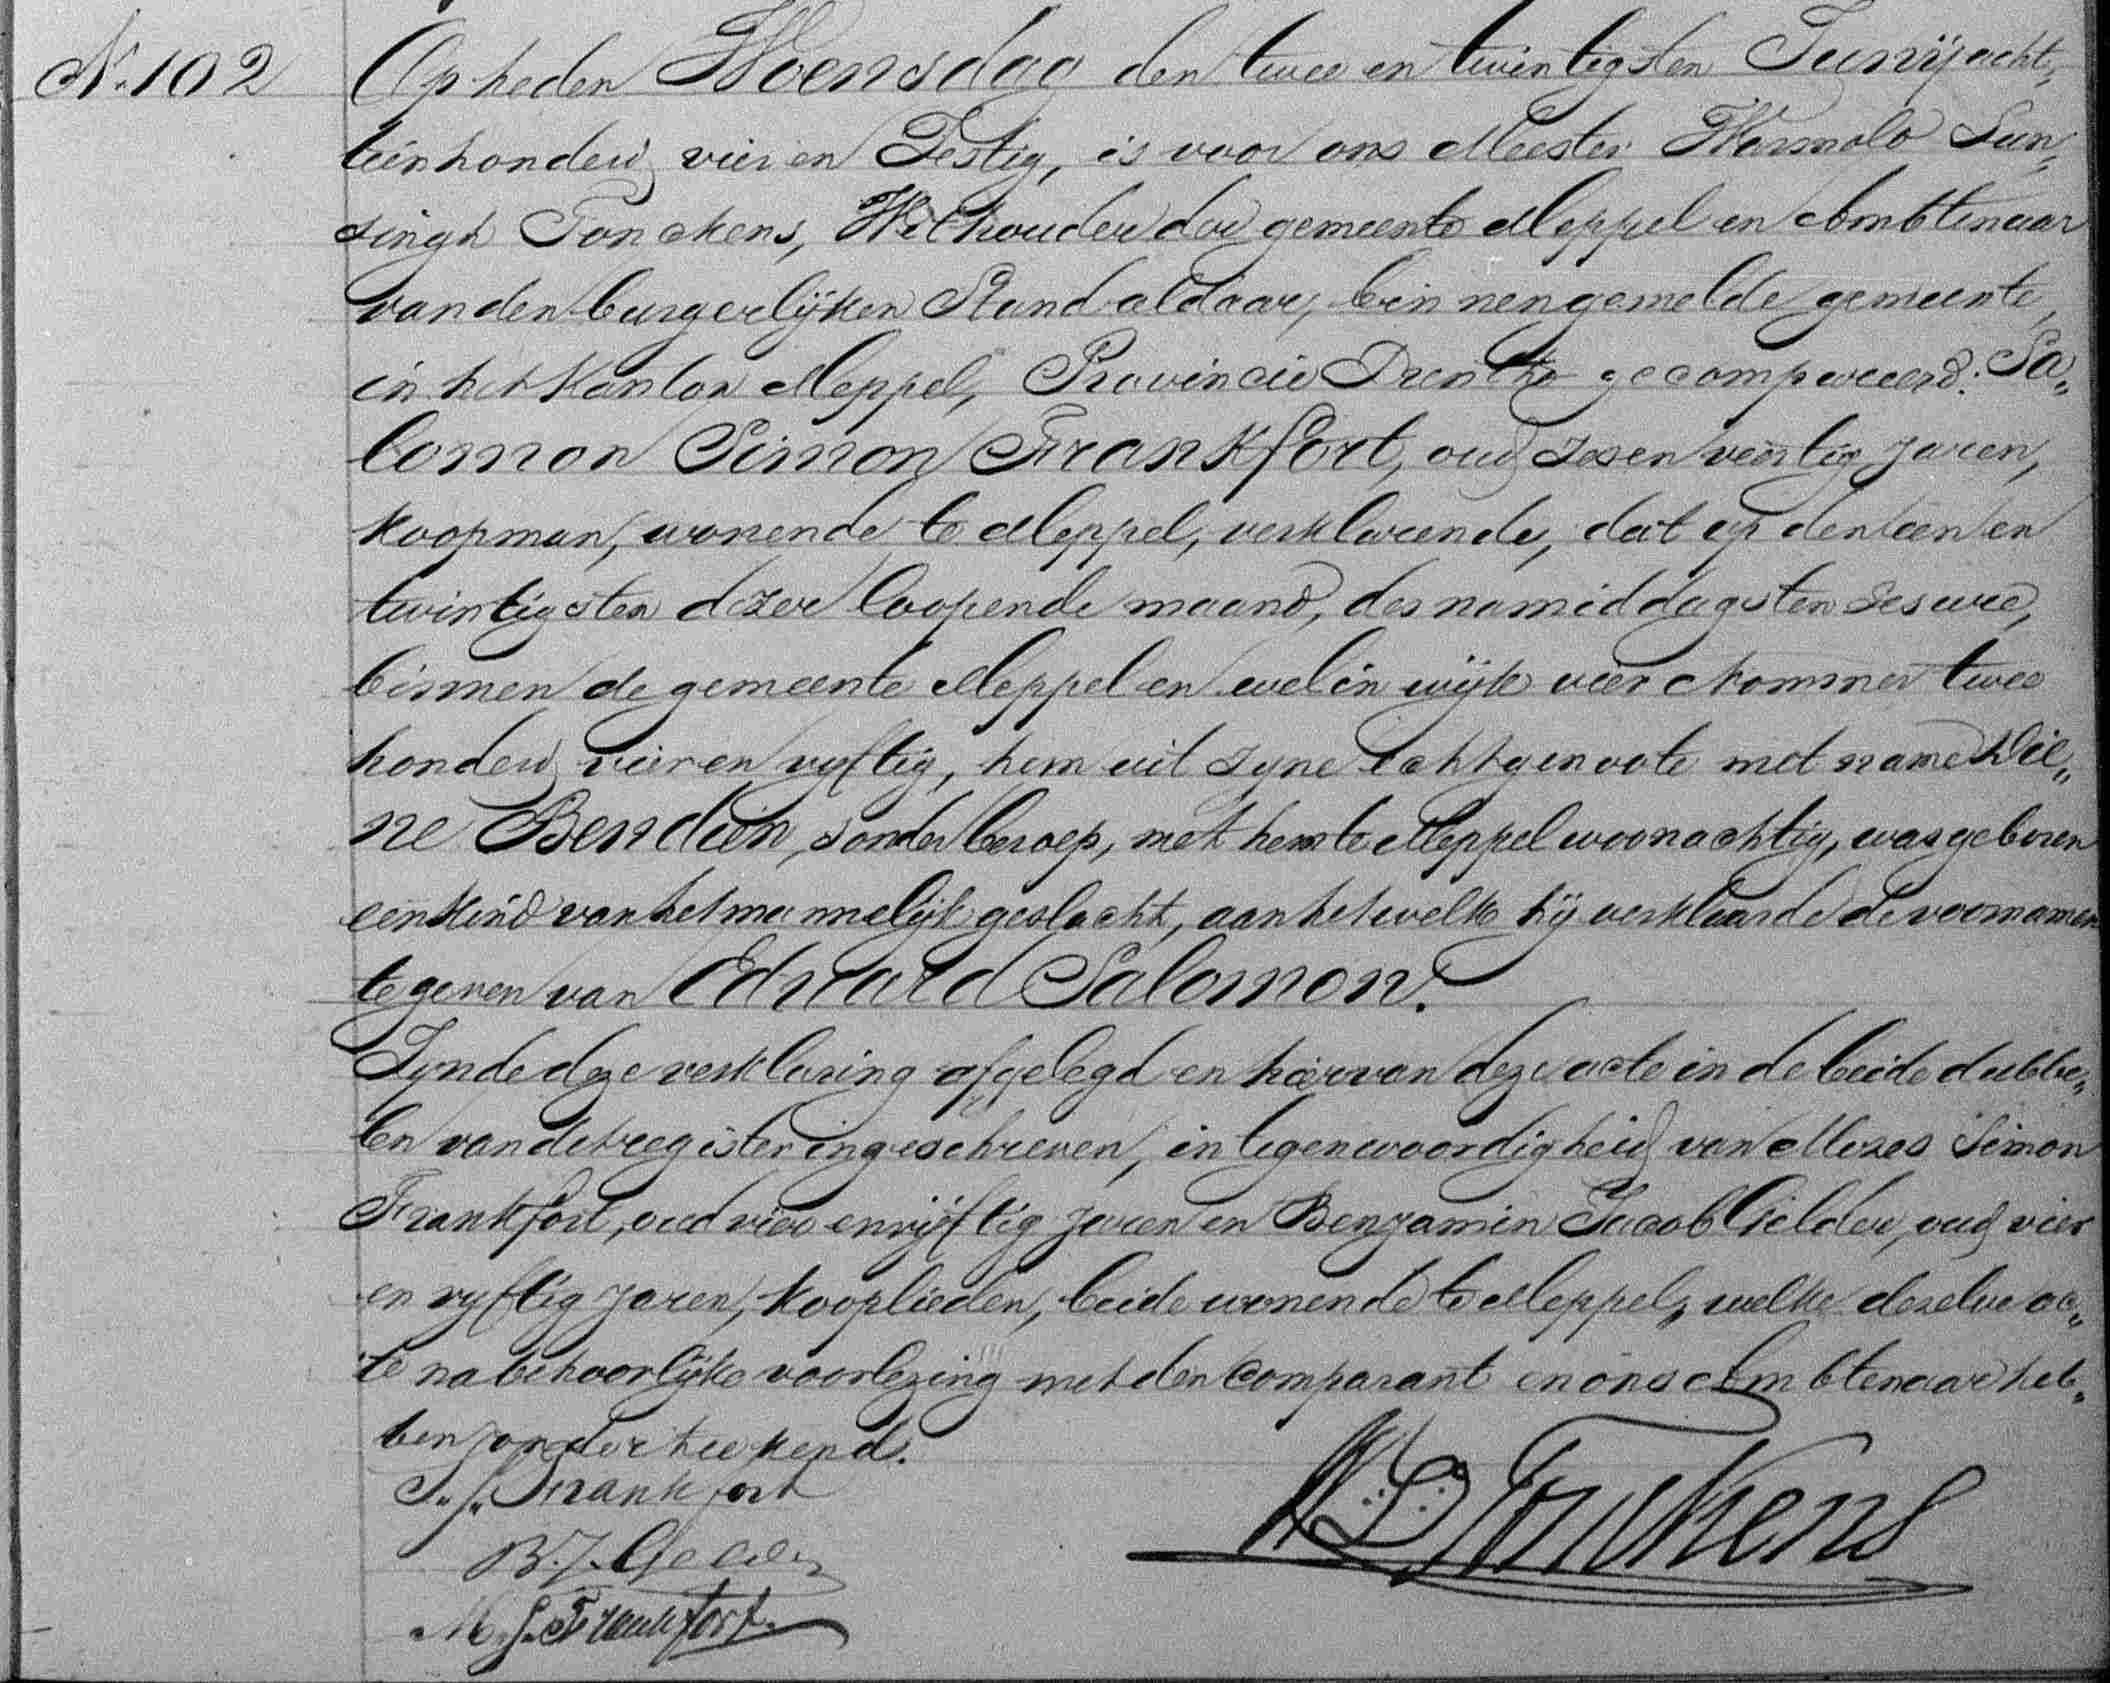 N. 102
Op heden Woensdag den twee en twintigsten Junij acht„
tienhonderd vier en Zestig, is voor ons Meester Warmolo Lun„
singh Tonckens, Wethouder der gemeente Meppel en Ambtenaar
van den burgerlijken Stand aldaar, binnen gemelde gemeente,
in het Kanton Meppel, Provincie Drenthe gecompareerd: Sa„
lomon Simon Frankfort, oud zes en veertig jaren,
koopman, wonende te Meppel, verklarende, dat op den een en
twintigsten dezer loopende maand, des namiddags ten zes ure,
binnen de gemeente Meppel en wel in wijk vier Nommer twee
honderd vier en vyftig, hem uit zyne echtgenoote met name Die„
ne Bendien, zonder beroep, met hem te Meppel woonachtig, was geboren
een kind van het mannelijk geslacht, aan hetwelk hij verklaarde de voornamen
te geven van Eduard Salomon.
Zynde deze verklaring afgelegd en hiervan deze acte in de beide dubbe„
len van det register ingeschreven, in tegenwoordigheid van Mozes Simon
Frankfort, oud vier en vijftig jaren en Benjamin Jacob Gelder, oud vier
en vyftig jaren, kooplieden, beide wonende te Meppel, welke dezelve ac„
te na behoorlijke voorlezing met den comparant en ons Ambtenaar heb„
ben onderteekend.
S. S. Frankfort
B. J. Gelder
M. S. Frankfort
W. L. Tonckens